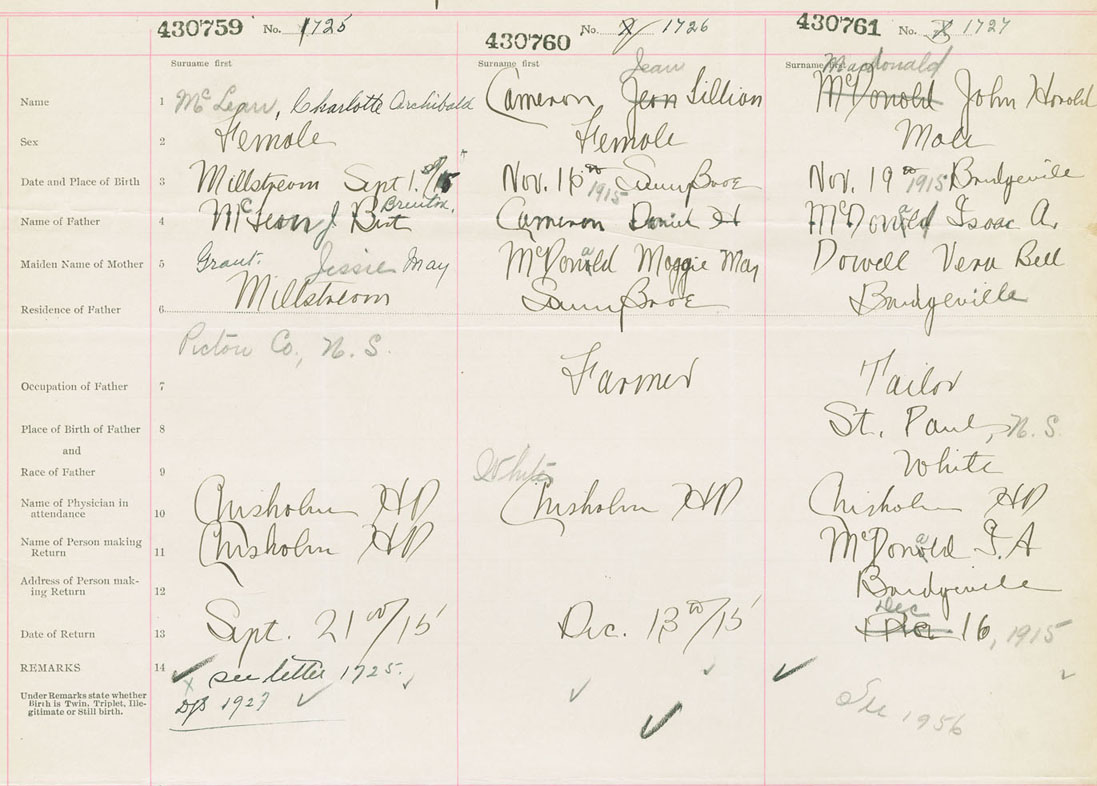 430759 No. 1725
430760 No. 1726
430761 No. 1727
Surname first
Surname first
Surname first
Jean
Macdonald
Name 1 McLean, Charlotte Archibald
Cameron, Jean Lillian
McDonald John Harold
Sex 2 Female
Female
Male
Date and Place of Birth 3 Millstream Sept 1. 15
Nov. 16th 1915 SunnyBrae
Nov. 19th 1915 Bridgeville
Brenton,
Name of Father 4 McLean J Bert
Cameron Daniel H
McDonald Isaac A.
Maiden Name of Mother 5 Grant. Jessie May
McDonald Maggie May
Dowell Vera Bell
Residence of Father 6 Millstream
SunnyBrae
Bridgeville
Pictou Co., N. S.
Occupation of Father 7
Farmer
Tailor
Place of Birth of Father 8
St. Paul, N. S.
and
Race of Father 9
White
White
Name of Physician in attendance 10 Chisholm HD
Chisholm HD
Chisholm HD
Name of Person making Return 11 Chisholm HD
McDonald I. A
Address of Person making Return 12
Bridgeville
Date of Return 13 Sept. 21st/15
Dec. 13th/15
Dec
16, 1915
REMARKS 14 see letter 1725.
x
1927
Under Remarks state whether
Birth is Twin, Triplet, Ille-
gitimate or Still birth.
See 1956